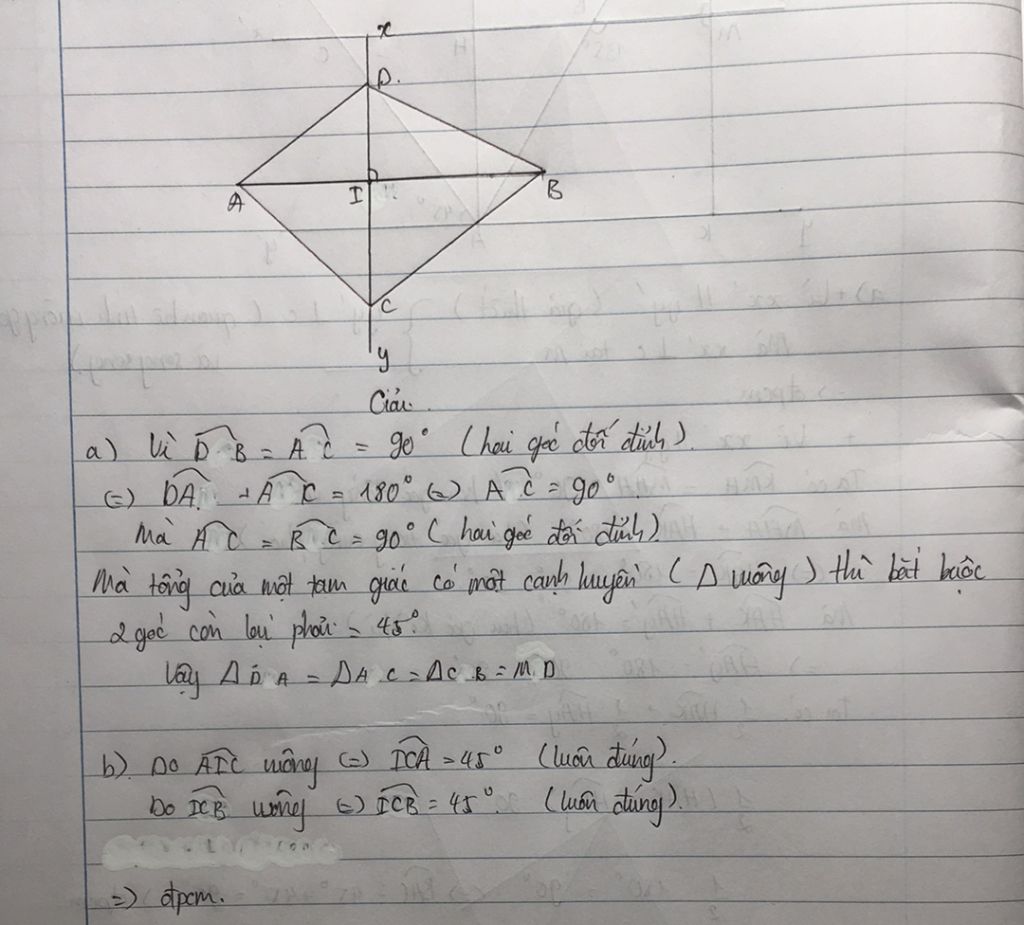 x
D.
A
I
B
C
y
Giải.
a) Vì D B = A C = 90° (hai góc đối đỉnh).
(=) DA + A C = 180° (=) A C = 90°.
Mà A C = B C = 90° (hai góc đối đỉnh)
Mà tổng của một tam giác có một cạnh huyền (Δ vuông) thì bắt buộc
2 góc còn lại phải = 45°.
Vậy Δ D A = Δ A C = Δ C B = D
b). Do AIC vuông (=) ICA = 45° (luôn đúng).
Do ICB vuông (=) ICB = 45°. (luôn đúng).
=) đpcm.